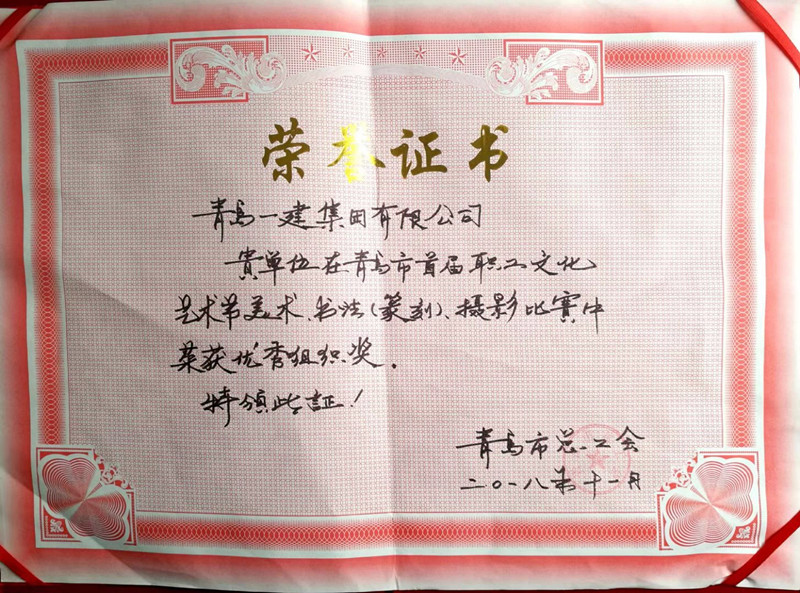 荣誉证书
青岛一建集团有限公司
贵单位在青岛市首届职工文化
艺术节美术、书法(篆刻)、摄影比赛中
荣获优秀组织奖。
特颁此証！
青岛市总工会
二〇一八年十一月